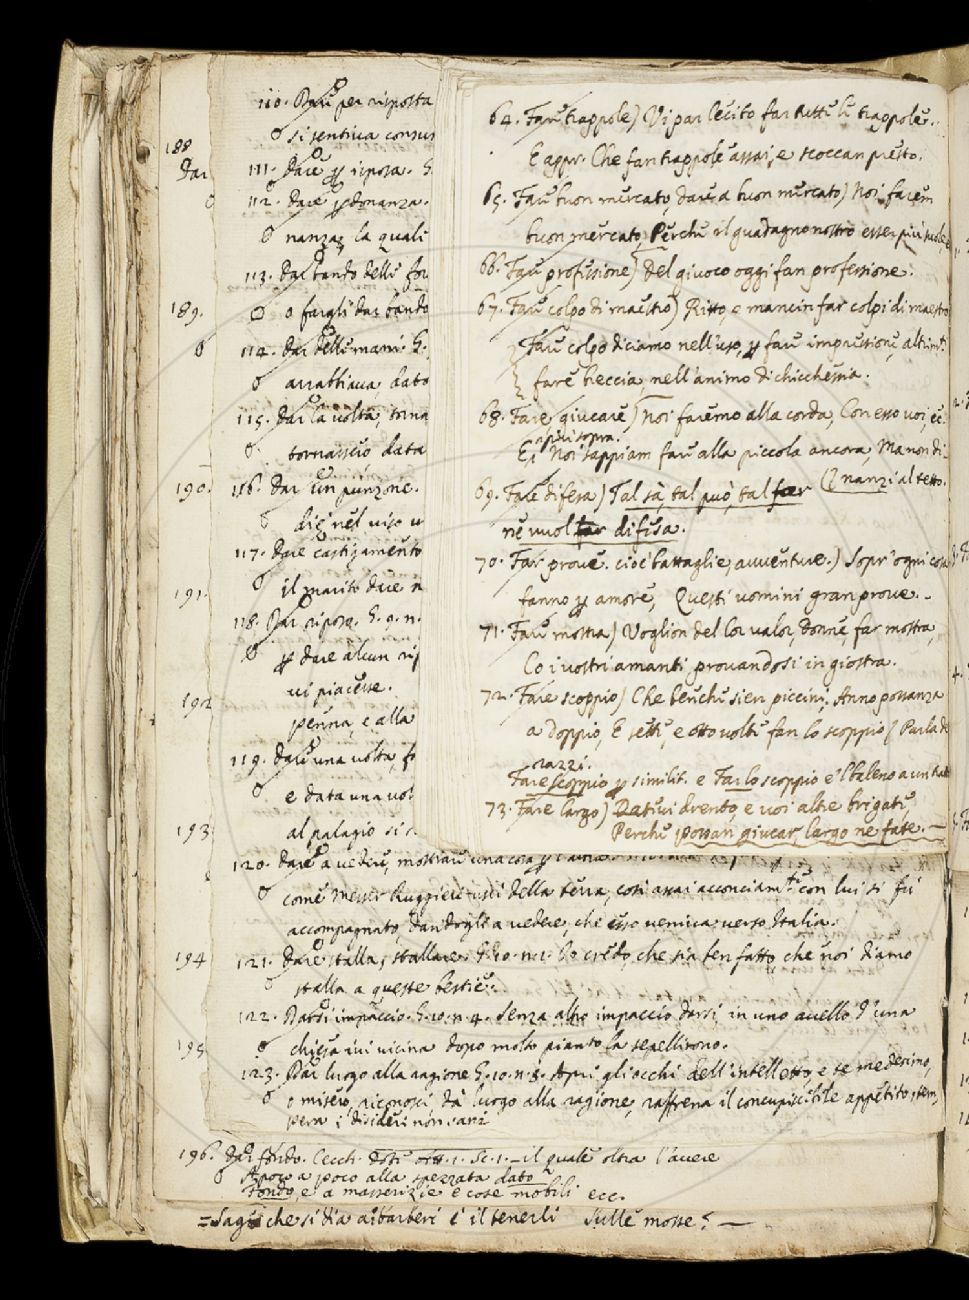 110. Dare per risposta
si sentiva consu
188
Dar
111. Dare riposo. G.
112. Dare donanza.
nanza, la quali
113. Dar bando delle
189.
o fargli dar bando
114. Dar delle mani. G.
arrabbiava, dato
115. Dar la volta, torna
tornassero data
190.
116. Dar un punzone.
diè nel viso u
117. Dare castigamento
191.
il marito dare
118. Dar riposo. G. 9. n.
dare alcun
vi piacesse.
192
penna, e alla
119. Dare una volta,
e data una vol
193
al palagio si
64. Fare trappole) Vi par lecito far tutte le trappole.
E appr. Che fan trappole assai, e scoccan presto.
65. Fare buon mercato, dare a buon mercato) Noi farem
buon mercato, Perchè il guadagno nostro esser più suole
66. Fare professione) Del giuoco oggi fan professione.
67. Fare colpo di maestro) Ritto, e mancin far colpi di maestro
Fare colpo diciamo nell'uso, fare impressione, altrimti
fare breccia, nell'animo di chicchessia.
68. Fare giucare) Noi faremo alla corda, Con esso voi, ec.
E, appr. sopra. Noi sappiam fare alla piccola ancora, Ma non di-
(nanzi al sesso.
69. Fare difesa) Tal sà, tal può, tal far
nè vuol far difesa.
70. Far prove. cioè battaglie, avventure.) Sopr'ogni cosa
fanno amore, Questi uomini gran prove.
71. Fare mostra) Voglion del lor valor, donne, far mostra,
Co i vostri amanti provandosi in giostra.
72. Fare scoppio) Che benchè sien piccini, Anno possanza
a doppio, E sette, e otto volte fan lo scoppio (Parla de
razzi.
Fare scoppio similit. e Far lo scoppio e 'l baleno a un tratto
73. Fare largo) Dativi drento, e voi altre brigate,
Perchè possan giucar, largo ne fate.
120. Dare a vedere, mostrare una cosa
come Messer Ruggieri della terra, così assai acconciamte con lui si fu
accompagnato, dandogli a vedere, che esso veniva verso Italia.
194
121. Dare stalla, stallare. G. 10. n. 2. Io credo, che sia ben fatto che noi diamo
stalla a queste bestie.
122. Darsi impaccio. G. 10. n. 4. Senza altro impaccio darsi, in uno avello d'una
195
chiesa ivi vicina dopo molto pianto la sepellirono.
123. Dar luogo alla ragione G. 10. n. 8. Apri gli occhi dell'intelletto, e te medesimo,
o misero, riconosci, dà luogo alla ragione, raffrena il concupiscibile appetito, tem,
pera i desideri non sani
196. Dar fondo. Cecch. Dote att. 1. Sc. 1. _ il quale oltra l'avere
A poco a poco alla spezzata dato
Fondo, e a masserizie e cose mobili ecc.
= Sagg. che si dia a' barberi è il tenerli sulle mosse? —